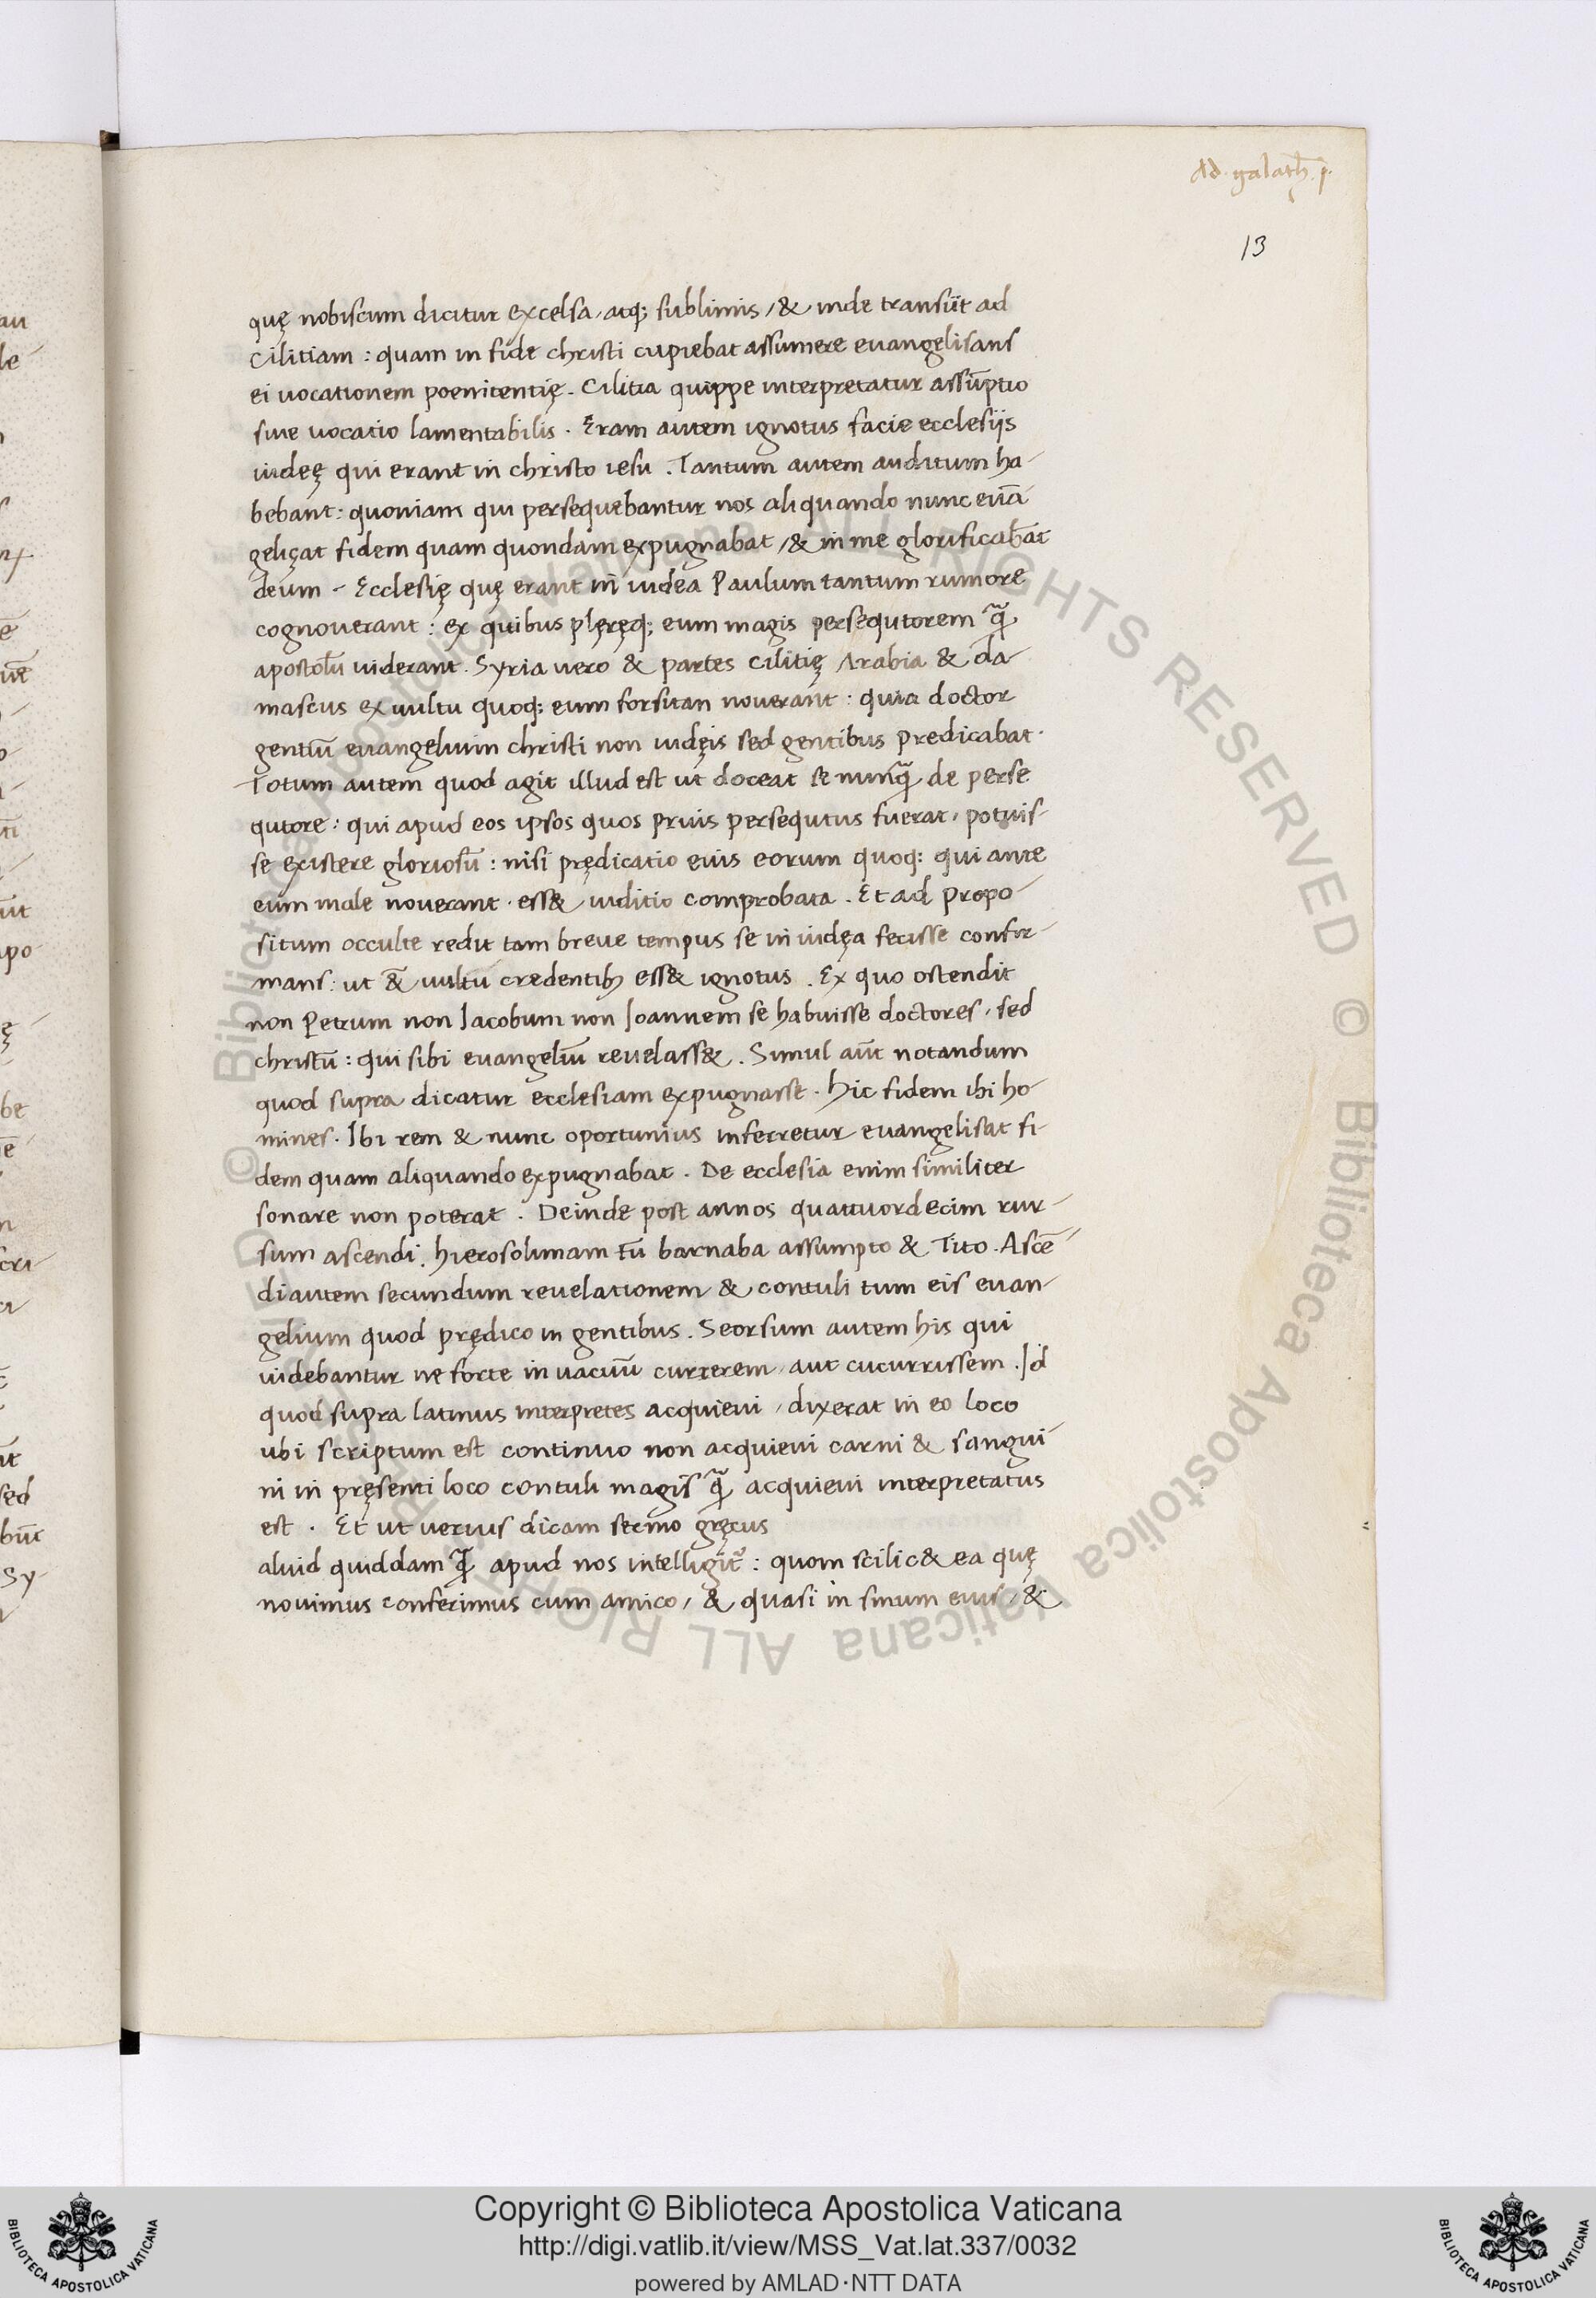 Ad. galath. p.
13
quę nobiscum dicitur excelsa, atq; sublimis, & inde transiit ad
cilitiam : quam in fide christi cupiebat assumere euangelisans
ei uocationem poenitentię. Cilitia quippe interpretatur assūptio
siue uocatio lamentabilis. Eram autem ignotus facie ecclesijs
iudeę qui erant in christo iesu. Tantum autem auditum ha-
bebant : quoniam qui persequebantur nos aliquando nunc euā
geliçat fidem quam quondam expugnabat, & in me glorificab̄āt
deum. Ecclesię quę erant in iudea Paulum tantum rumore
cognouerant : ex quibus plęręq; eum magis persequtorem q̃
apostolū uiderant. Syria uero & partes cilitię Arabia & da-
mascus ex uultu quoq; eum forsitan nouerant : quia doctor
gentiū euangelium christi non iudęis sed gentibus predicabat.
Totum autem quod agit illud est ut doceat se nunq̃ de perse
qutore : qui apud eos ipsos quos prius persequtus fuerat, potuis-
se existere gloriosū : nisi prędicatio eius eorum quoq; qui ante
eum male nouerant. ess& iuditio comprobata. Et ad propo-
situm occulte redit tam breue tempus se in iudęa fecisse confir-
mans : ut & uultu credentib; ess& ignotus. Ex quo ostendit
non Petrum non Jacobum non Joannem se habuisse doctores, sed
christū : qui sibi euangeliū reuelass&. Simul aūt notandum
quod supra dicatur ecclesiam expugnasse. hic fidem ibi ho-
mines. Ibi rem & nunc oportunius inferretur euangelisat fi-
dem quam aliquando expugnabat. De ecclesia enim similiter
sonare non poterat. Deinde post annos quattuordecim rur-
sum ascendi. hierosolimam cū barnaba assumpto & Tito. Ascē-
di autem secundum reuelationem & contuli tum eis euan-
gelium quod prędico in gentibus. Seorsum autem his qui
uidebantur ne forte in uacuū currerem, aut cucurrissem. Id
quod supra latinus interpretes acquieui, dixerat in eo loco
ubi scriptum est continuo non acquieui carni & sangui-
ni in pręsenti loco contuli magis q̃ acquieui interpretatus
est. Et ut uerius dicam sermo gręcus
aliud quiddam q̃ apud nos intelligit̃ : quom scilic& ea quę
nouimus conferimus cum amico, & quasi in sinum eius, &
Copyright © Biblioteca Apostolica Vaticana
http://digi.vatlib.it/view/MSS_Vat.lat.337/0032
powered by AMLAD·NTT DATA